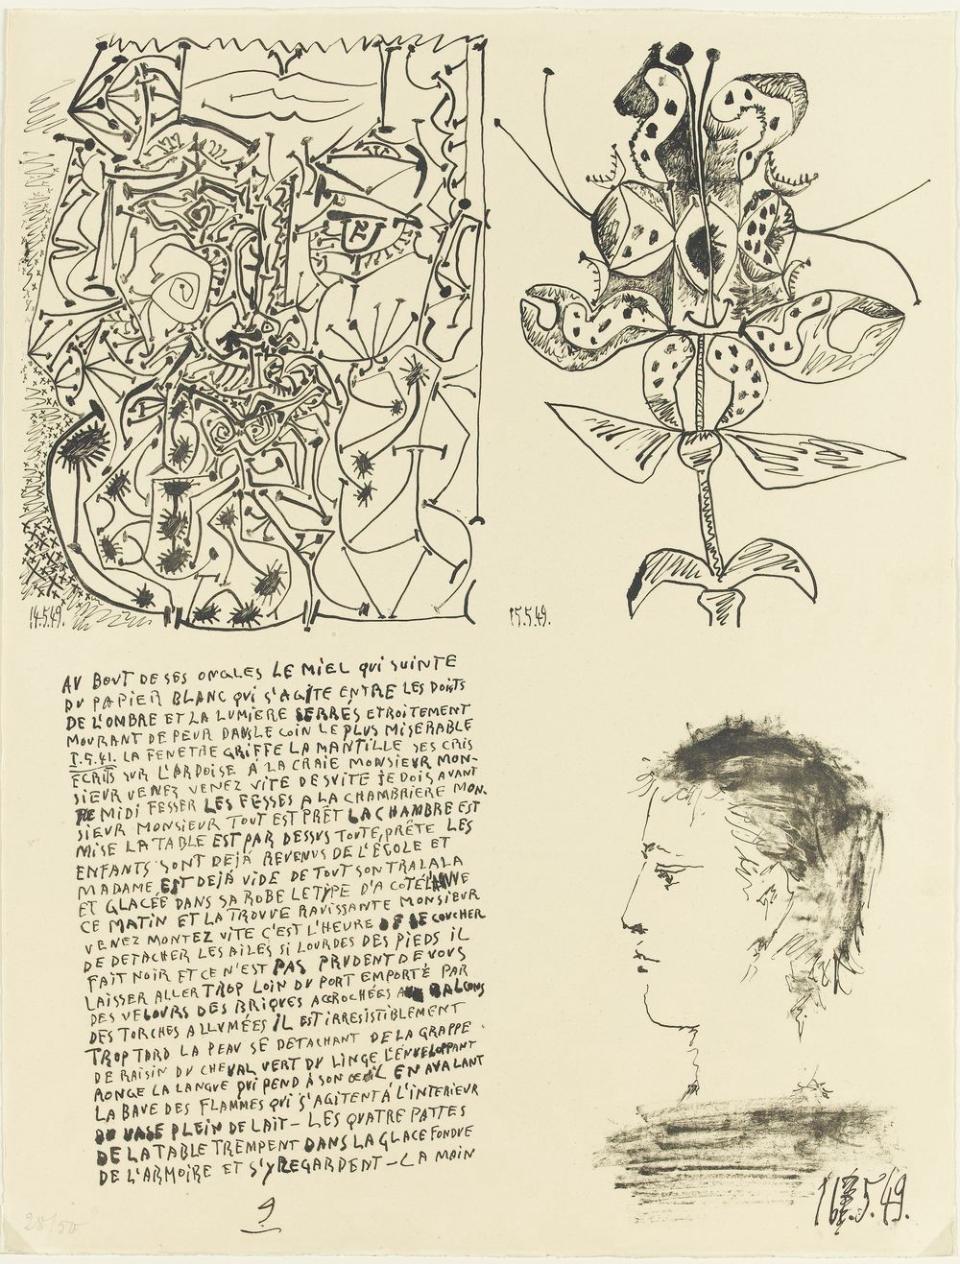 14.5.49.
15.5.49.
AU BOUT DE SES ONGLES LE MIEL QUI SUINTE
DU PAPIER BLANC QUI S'AGITE ENTRE LES DOIGTS
DE L'OMBRE ET LA LUMIERE SERRES ETROITEMENT
MOURANT DE PEUR DANS LE COIN LE PLUS MISERABLE
1.5.41. LA FENETRE GRIFFE LA MANTILLE SES CRIS
ÉCRITS SUR L'ARDOISE A LA CRAIE MONSIEUR MON-
SIEUR VENEZ VENEZ VITE DESVITE JE DOIS AVANT
MIDI FESSER LES FESSES A LA CHAMBRIERE MON.
SIEUR MONSIEUR TOUT EST PRÊT LA CHAMBRE EST
MISE LA TABLE EST PAR DESSUS TOUTE PRÊTE LES
ENFANTS SONT DEJÀ REVENUS DE L'ÉCOLE ET
MADAME EST DEJÀ VIDE DE TOUT SON TRALALA
ET GLACÉE DANS SA ROBE LE TYPE D'A COTÉ
CE MATIN ET LA TROUVE RAVISSANTE MONSIEUR
VENEZ MONTEZ VITE C'EST L'HEURE DE SE COUCHER
DE DETACHER LES AILES SI LOURDES DES PIEDS IL
FAIT NOIR ET CE N'EST PAS PRUDENT DE VOUS
LAISSER ALLER TROP LOIN DU PORT EMPORTÉ PAR
DES VELOURS DES BRIQUES ACCROCHÉES AUX BALCONS
DES TORCHES ALLUMÉES IL EST IRRESISTIBLEMENT
TROP TARD LA PEAU SE DETACHANT DE LA GRAPPE
DE RAISIN DU CHEVAL VERT DU LINGE L'ENVELOPPANT
RONGE LA LANGUE QUI PEND À SON OEIL EN AVALANT
LA BAVE DES FLAMMES QUI S'AGITENT À L'INTERIEUR
DU VASE PLEIN DE LAIT – LES QUATRE PATTES
DE LA TABLE TREMPENT DANS LA GLACE FONDUE
DE L'ARMOIRE ET S'Y REGARDENT – LA MAIN
9
16.5.49.
28/50